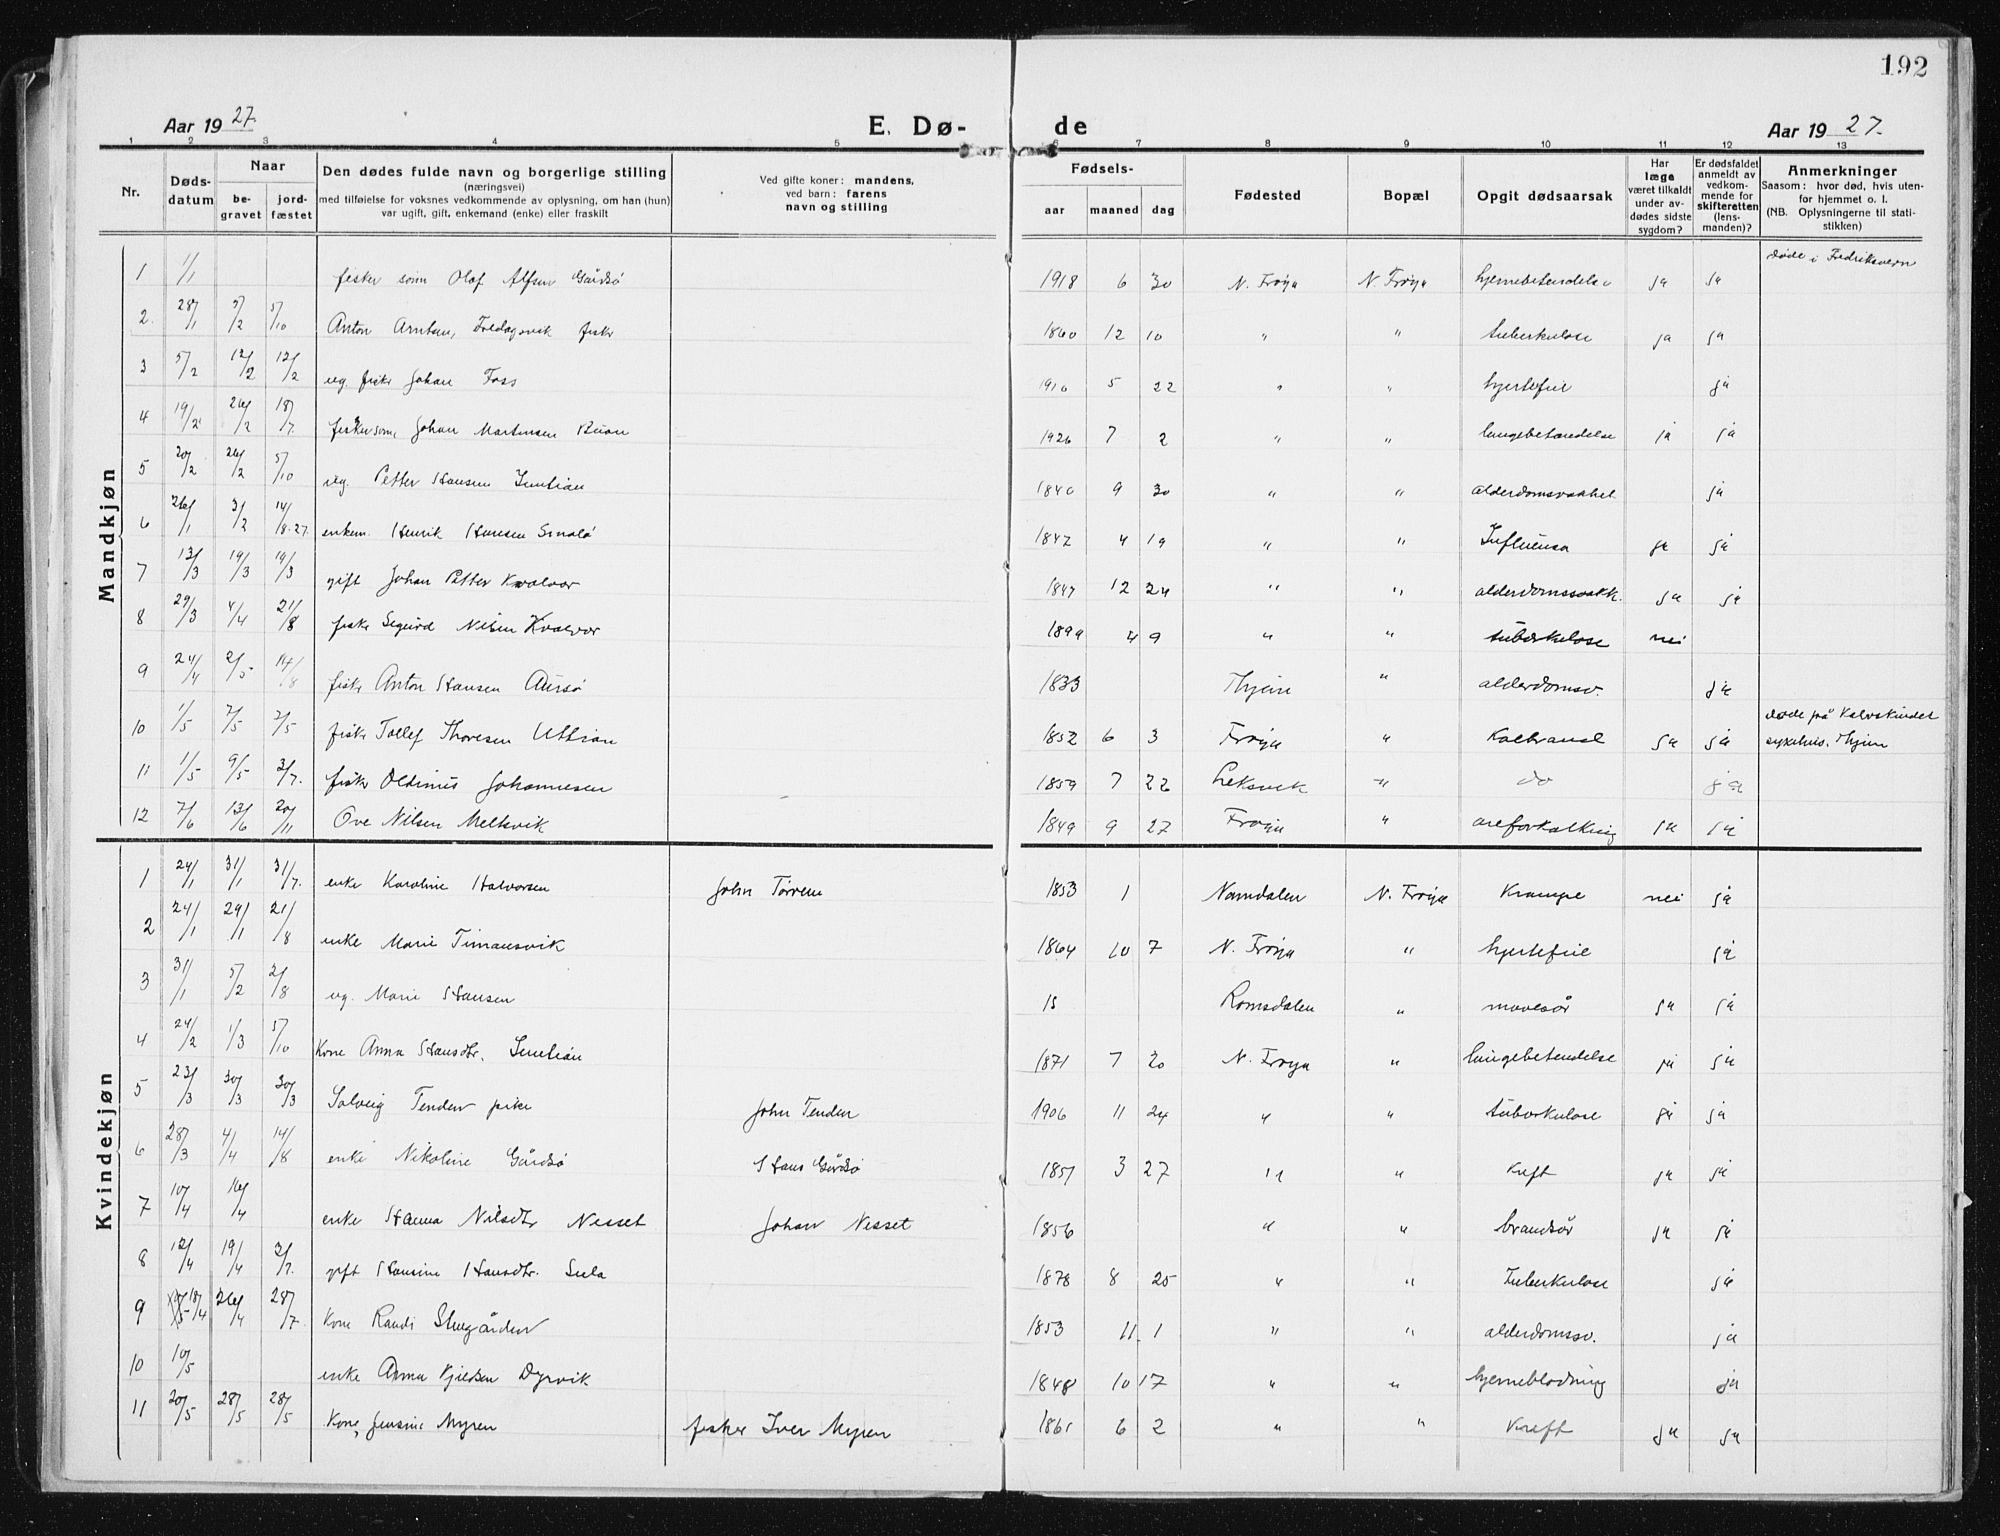 192
Aar 1927.
E. Dø-
de
Aar 1927.
1 2 3 4 5 6 7 8 9 10 11 12 13
Nr. Døds-datum Naar be-gravet jord-fæstet
Den dødes fulde navn og borgerlige stilling
(næringsvei)
med tilføielse for voksnes vedkommende av oplysning, om han (hun)
var ugift, gift, enkemand (enke) eller fraskilt
Ved gifte koner: mandens,
ved barn: farens
navn og stilling
Fødsels- aar maaned dag
Fødested
Bopæl
Opgit dødsaarsak
Har læge været tilkaldt under av-dødes sidste sygdom?
Er dødsfaldet anmeldt av vedkom-mende for skifteretten (lens-manden)?
Anmerkninger
Saasom: hvor død, hvis uten-for hjemmet o. l.
(NB. Oplysningerne til stati-stikken)
Mandkjøn
1 1/1 fisker sønn Olaf Alfsen Gårdsø 1918 6 30 N. Frøya N. Frøya hjernebetendelse ja ja døde i Fredriksvern
2. 28/1 5/2 5/10 Anton Arntsen, fisker 1860 12 10 " " tuberkulose ja ja
3 5/2 12/2 12/2 ug. fisker Johan Foss 1910 5 22 " " hjertefeil ja
4 19/2 26/2 18/7. fiskersønn, Johan Martinsen Buan 1926 7 2 " " lungebetændelse ja ja
5 20/2 26/2 5/10 ug. Petter Hansen Inntian 1840 9 30 " " alderdomsvakhet ja
6 26/1 3/2 14/8-27. enkem. Henrik Hansen 1847 4 19 " " Influensa ja ja
7 13/3 19/3 19/3 gift Johan Petter Kvalvær 1847 12 24 " " alderdomssvakk. ja ja
8 29/3 4/4 21/8 fisker Sigurd Nilsen Kvalvær 1899 4 9 " " tuberkulose nei
9 24/4 2/5 14/8 fisker Anton Hansen Aursø 1833 Thjem " alderdomsv. ja
10 1/5 7/5 7/5 fisker Tollef Thoresen Uttian 1852 6 3 Frøya " Kolbrand ja ja døde på Kalvskindet sykehus. Thjem
11 1/5 9/5 3/7. fisker Oldinus Johannesen 1859 7 22 Leksvik " do ja
12 7/6 13/6 20/11 Ove Nilsen Melkvik 1849 9 27 Frøya " areforkalkning ja ja
Kvindekjøn
1 24/1 31/1 31/7. enke Karoline Halvorsen John Tørrem 1853 1 Namdalen N. Frøya Krampe nei ja
2 24/1 29/1 21/8 enke Marie Timansvik 1864 10 7 N. Frøya " hjertefeil ja
3 31/1 5/2 2/8 ug. Marie Hansen 18 Romsdalen " mavesår ja ja
4 24/2 1/3 5/10 Kone Anna Hansdtr. Inntian 1871 7 20 N. Frøya " lungebetendelse ja ja
5 23/3 30/3 30/3 Solveig Tenden pike John Tenden 1906 11 24 " " tuberkulose ja ja
6 28/3 4/4 14/8 enke Nikoline Gårdsø Hans Gårdsø 1851 3 27 " " Kreft ja ja
7 10/4 16/4 enke Hanna Nilsdtr Nesset Johan Nesset 1856 " " brandsår ja ja
8 12/4 19/4 3/7. gift Hansine Hansdtr. Sula 1878 8 25 " " Tuberkulose ja
9 18/4 26/4 28/7. Kone Randi 1853 11. 1 " " alderdomssv. ja
10 10/5 enke Anna Kjeldsen Dyrvik 1848 10 17 " " hjerneblødning ja
11 20/5 28/5 28/5 Kone, Jensine Myren fisker Iver Myren 1861 6 2 " " Kreft ja ja